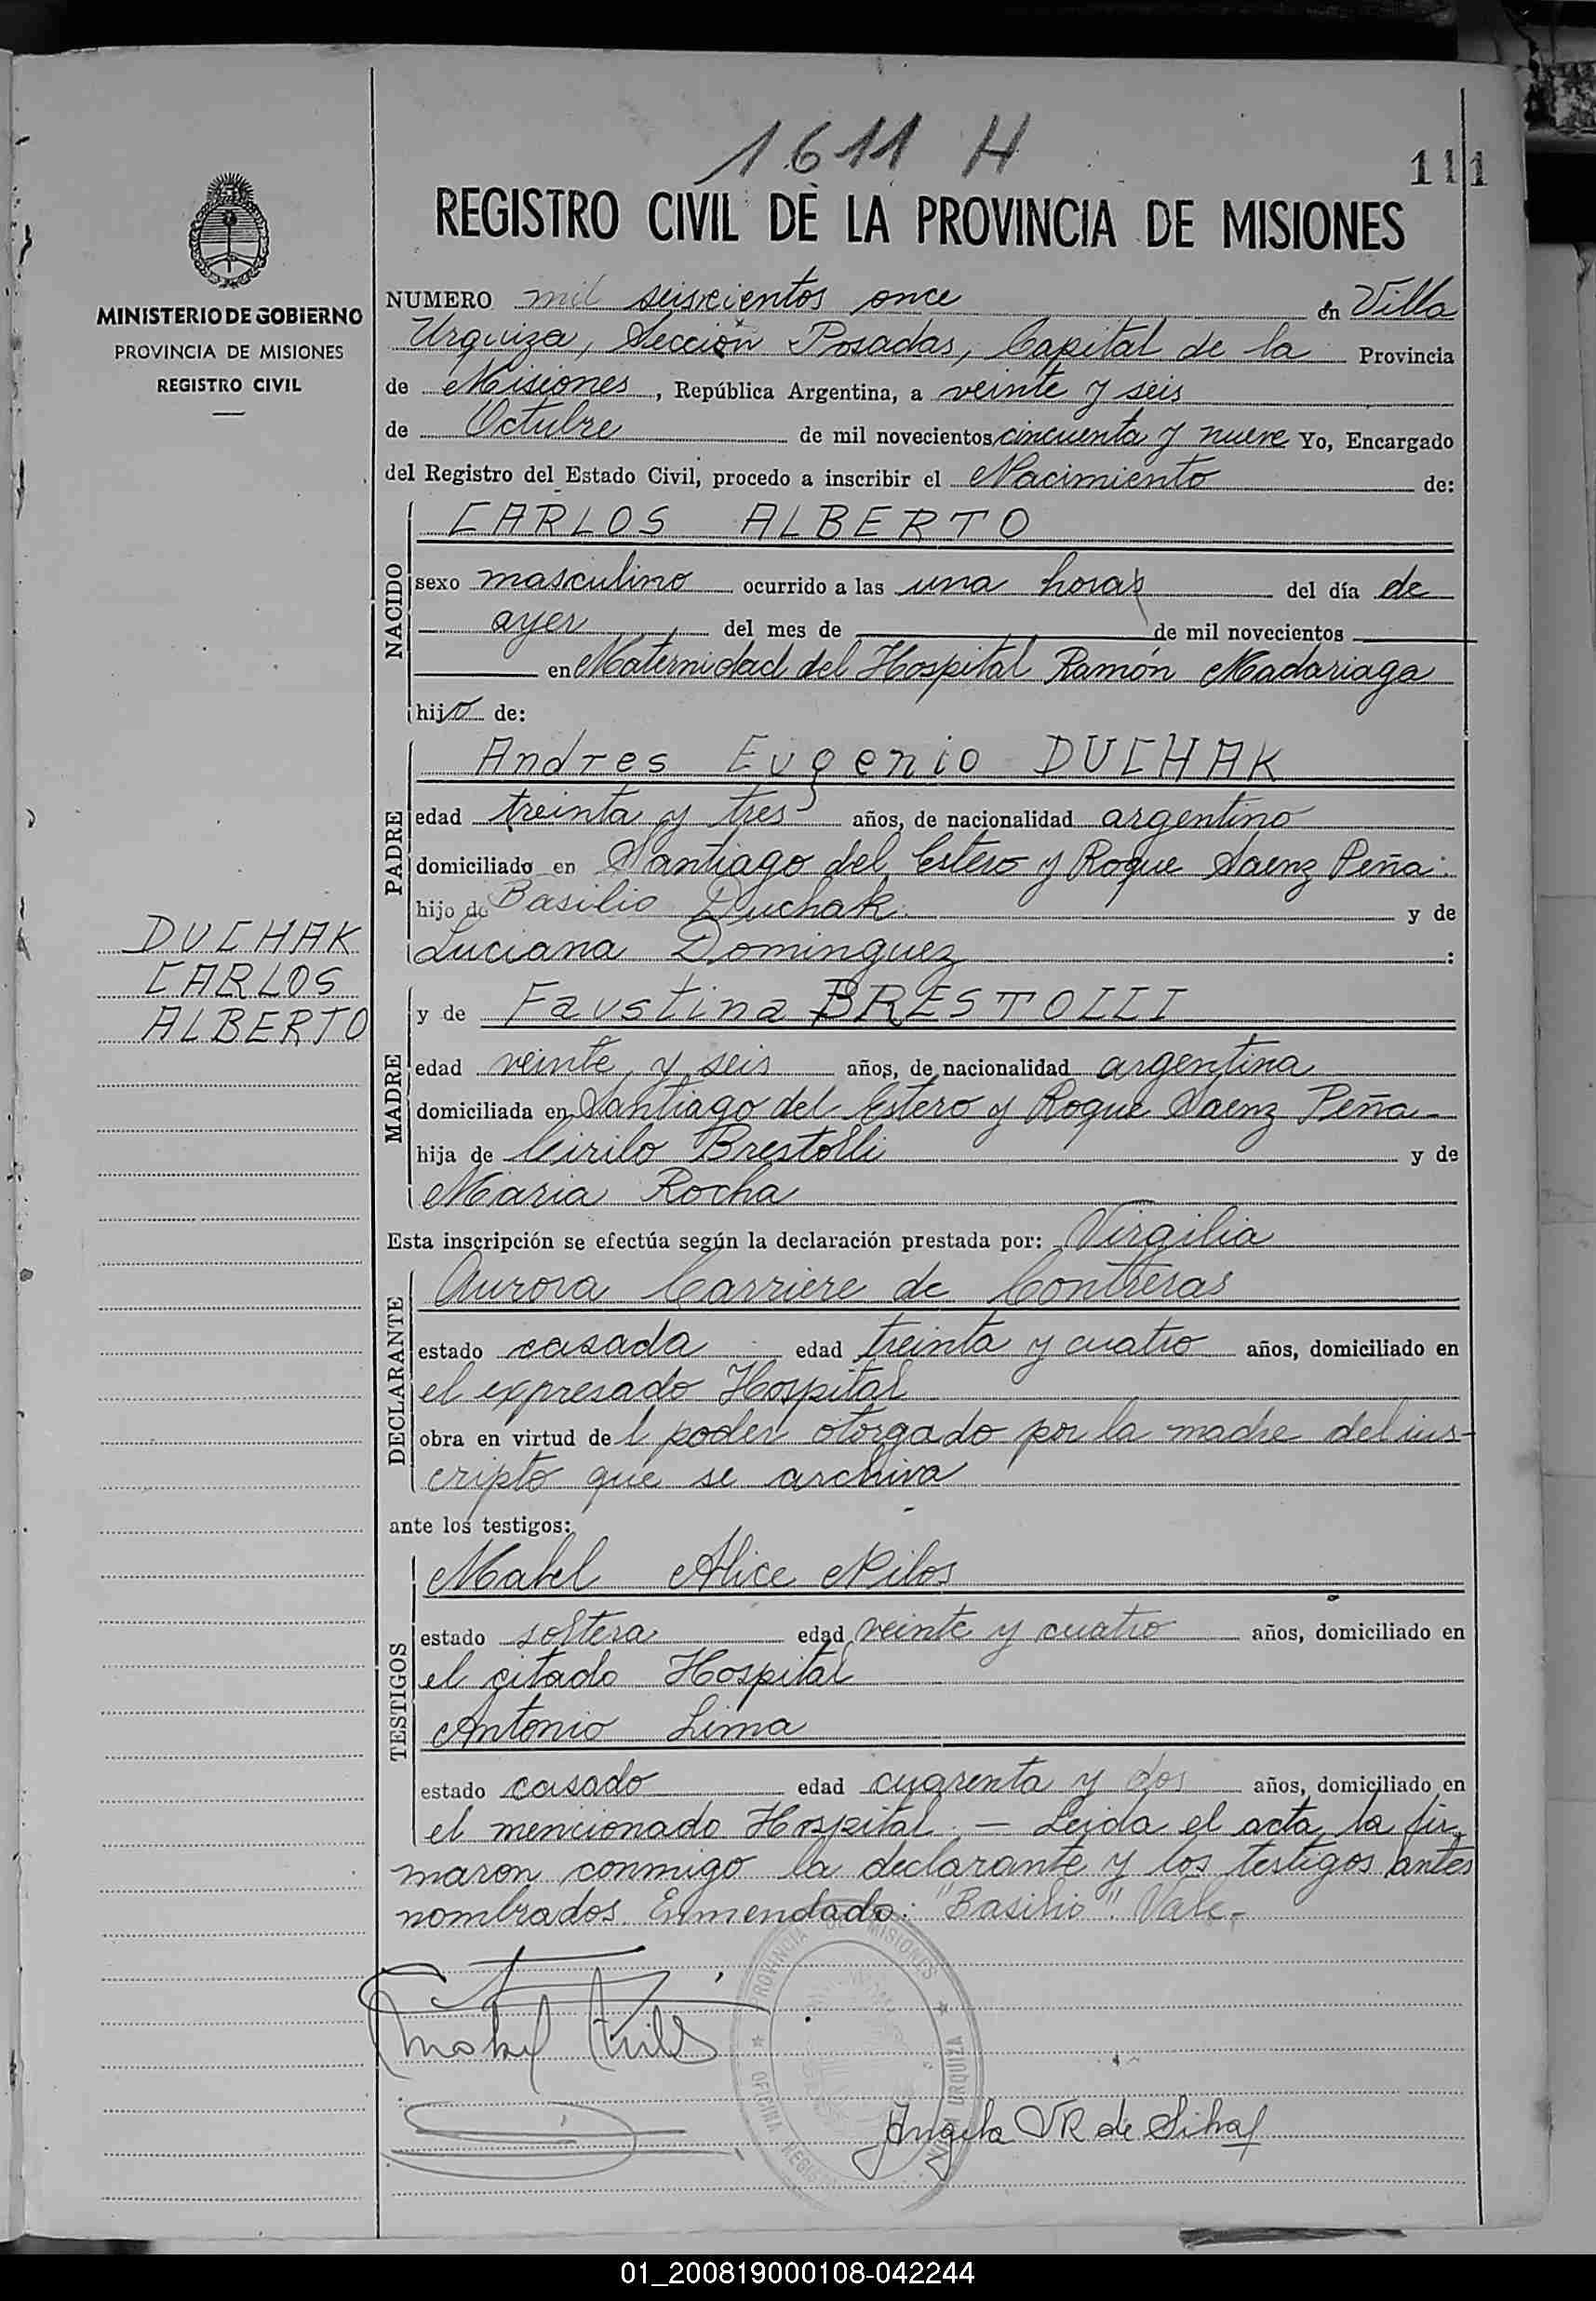 1611 H
111
REGISTRO CIVIL DE LA PROVINCIA DE MISIONES
MINISTERIO DE GOBIERNO
PROVINCIA DE MISIONES
REGISTRO CIVIL
NUMERO mil seiscientos once en Villa
Urquiza, Sección Posadas, Capital de la Provincia
de Misiones, República Argentina, a veinte y seis
de Octubre de mil novecientos cincuenta y nueve Yo, Encargado
del Registro del Estado Civil, procedo a inscribir el Nacimiento de:
NACIDO
CARLOS ALBERTO
sexo masculino ocurrido a las una horas del día de
ayer del mes de de mil novecientos
en Maternidad del Hospital Ramón Madariaga
hijo de:
PADRE
Andres Eugenio DUCHAK
edad treinta y tres años, de nacionalidad argentino
domiciliado en Santiago del Estero y Roque Saenz Peña.
hijo de Basilio Duchak y de
Luciana Dominguez :
DUCHAK
CARLOS
ALBERTO
MADRE
y de Faustina BRESTOLLI
edad veinte y seis años, de nacionalidad argentina
domiciliada en Santiago del Estero y Roque Saenz Peña-
hija de Cirilo Brestolli y de
Maria Rocha
Esta inscripción se efectúa según la declaración prestada por: Virgilia
DECLARANTE
Aurora Carriere de Contreras
estado casada edad treinta y cuatro años, domiciliado en
el expresado Hospital
obra en virtud de l poder otorgado por la madre del ins-
cripto que se archiva
ante los testigos:
TESTIGOS
Mabel Alice Nilos
estado soltera edad veinte y cuatro años, domiciliado en
el citado Hospital
Antonio Lima
estado casado edad cuarenta y dos años, domiciliado en
el mencionado Hospital. — Leida el acta, la fir-
maron conmigo la declarante y los testigos antes
nombrados. Enmendado: "Basilio". Vale.-
PROVINCIA DE MISIONES
OFICINA
URQUIZA
Angela VR de Silva
01_200819000108-042244